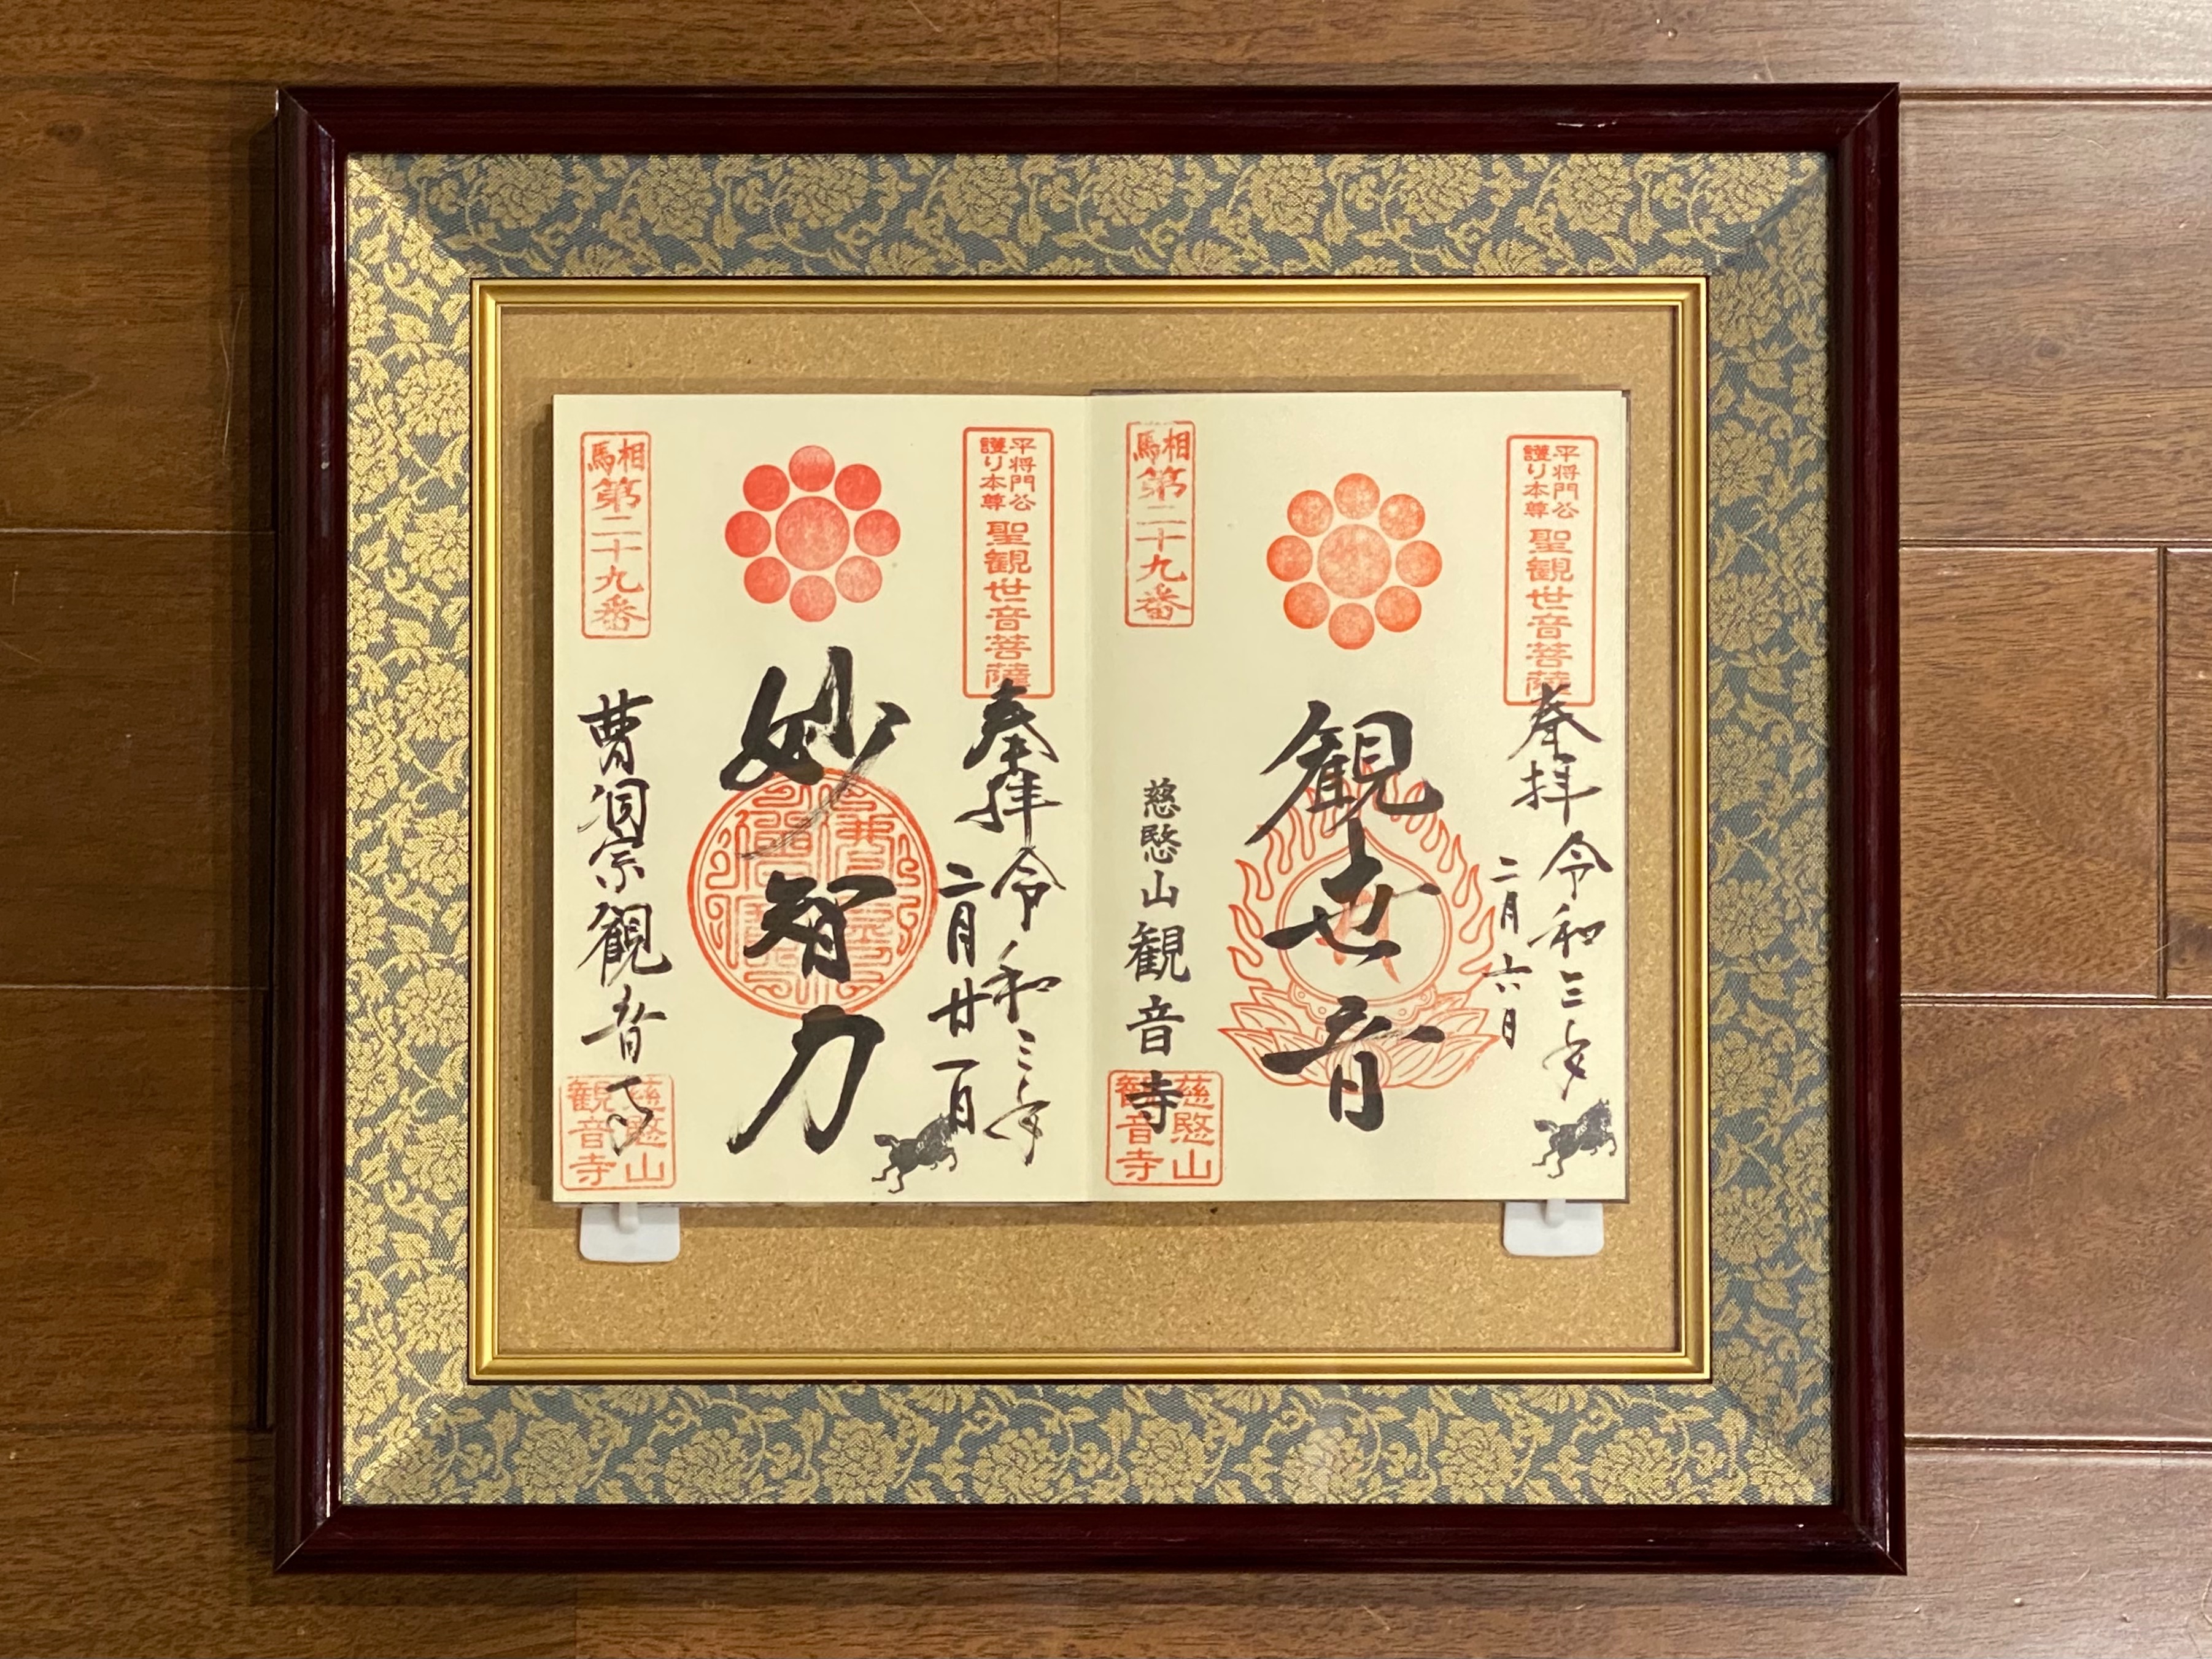 平将門公
護り本尊
聖観世音菩薩
奉拝
令和三年
二月六日
観世音
相馬
第二十九番
慈愍山
観音寺
慈愍山
観音寺
平将門公
護り本尊
聖観世音菩薩
奉拝
令和三年
二月廿一日
妙智力
相馬
第二十九番
曹洞宗観音寺
慈愍山
観音寺